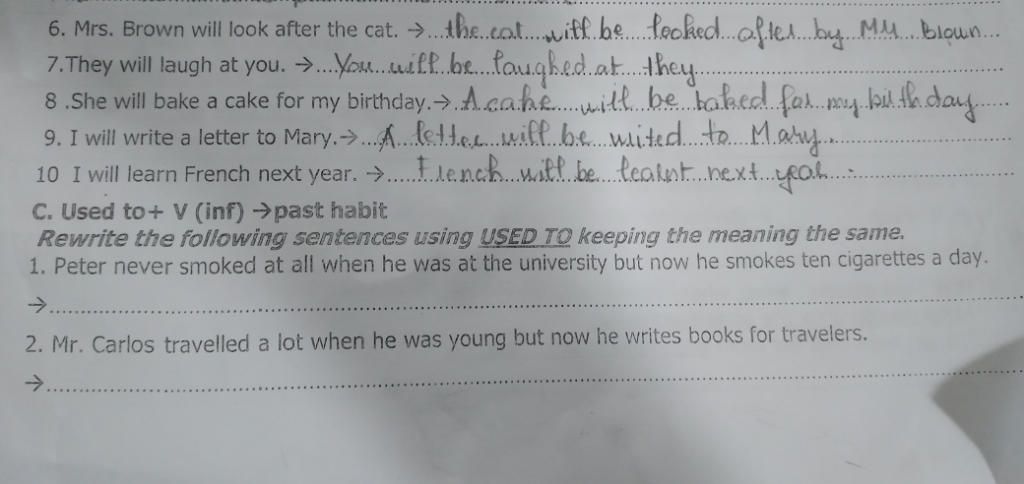 6. Mrs. Brown will look after the cat. →...the cat will be looked after by Mrs. Brown...
7.They will laugh at you. →....You will be laughed at they......
8 .She will bake a cake for my birthday.→.A cake will be baked for my birthday......
9. I will write a letter to Mary.→...A letter will be writed to Mary......
10 I will learn French next year. →.....French will be learnt next year......
C. Used to+ V (inf) →past habit
Rewrite the following sentences using USED TO keeping the meaning the same.
1. Peter never smoked at all when he was at the university but now he smokes ten cigarettes a day.
→......................................................
2. Mr. Carlos travelled a lot when he was young but now he writes books for travelers.
→......................................................